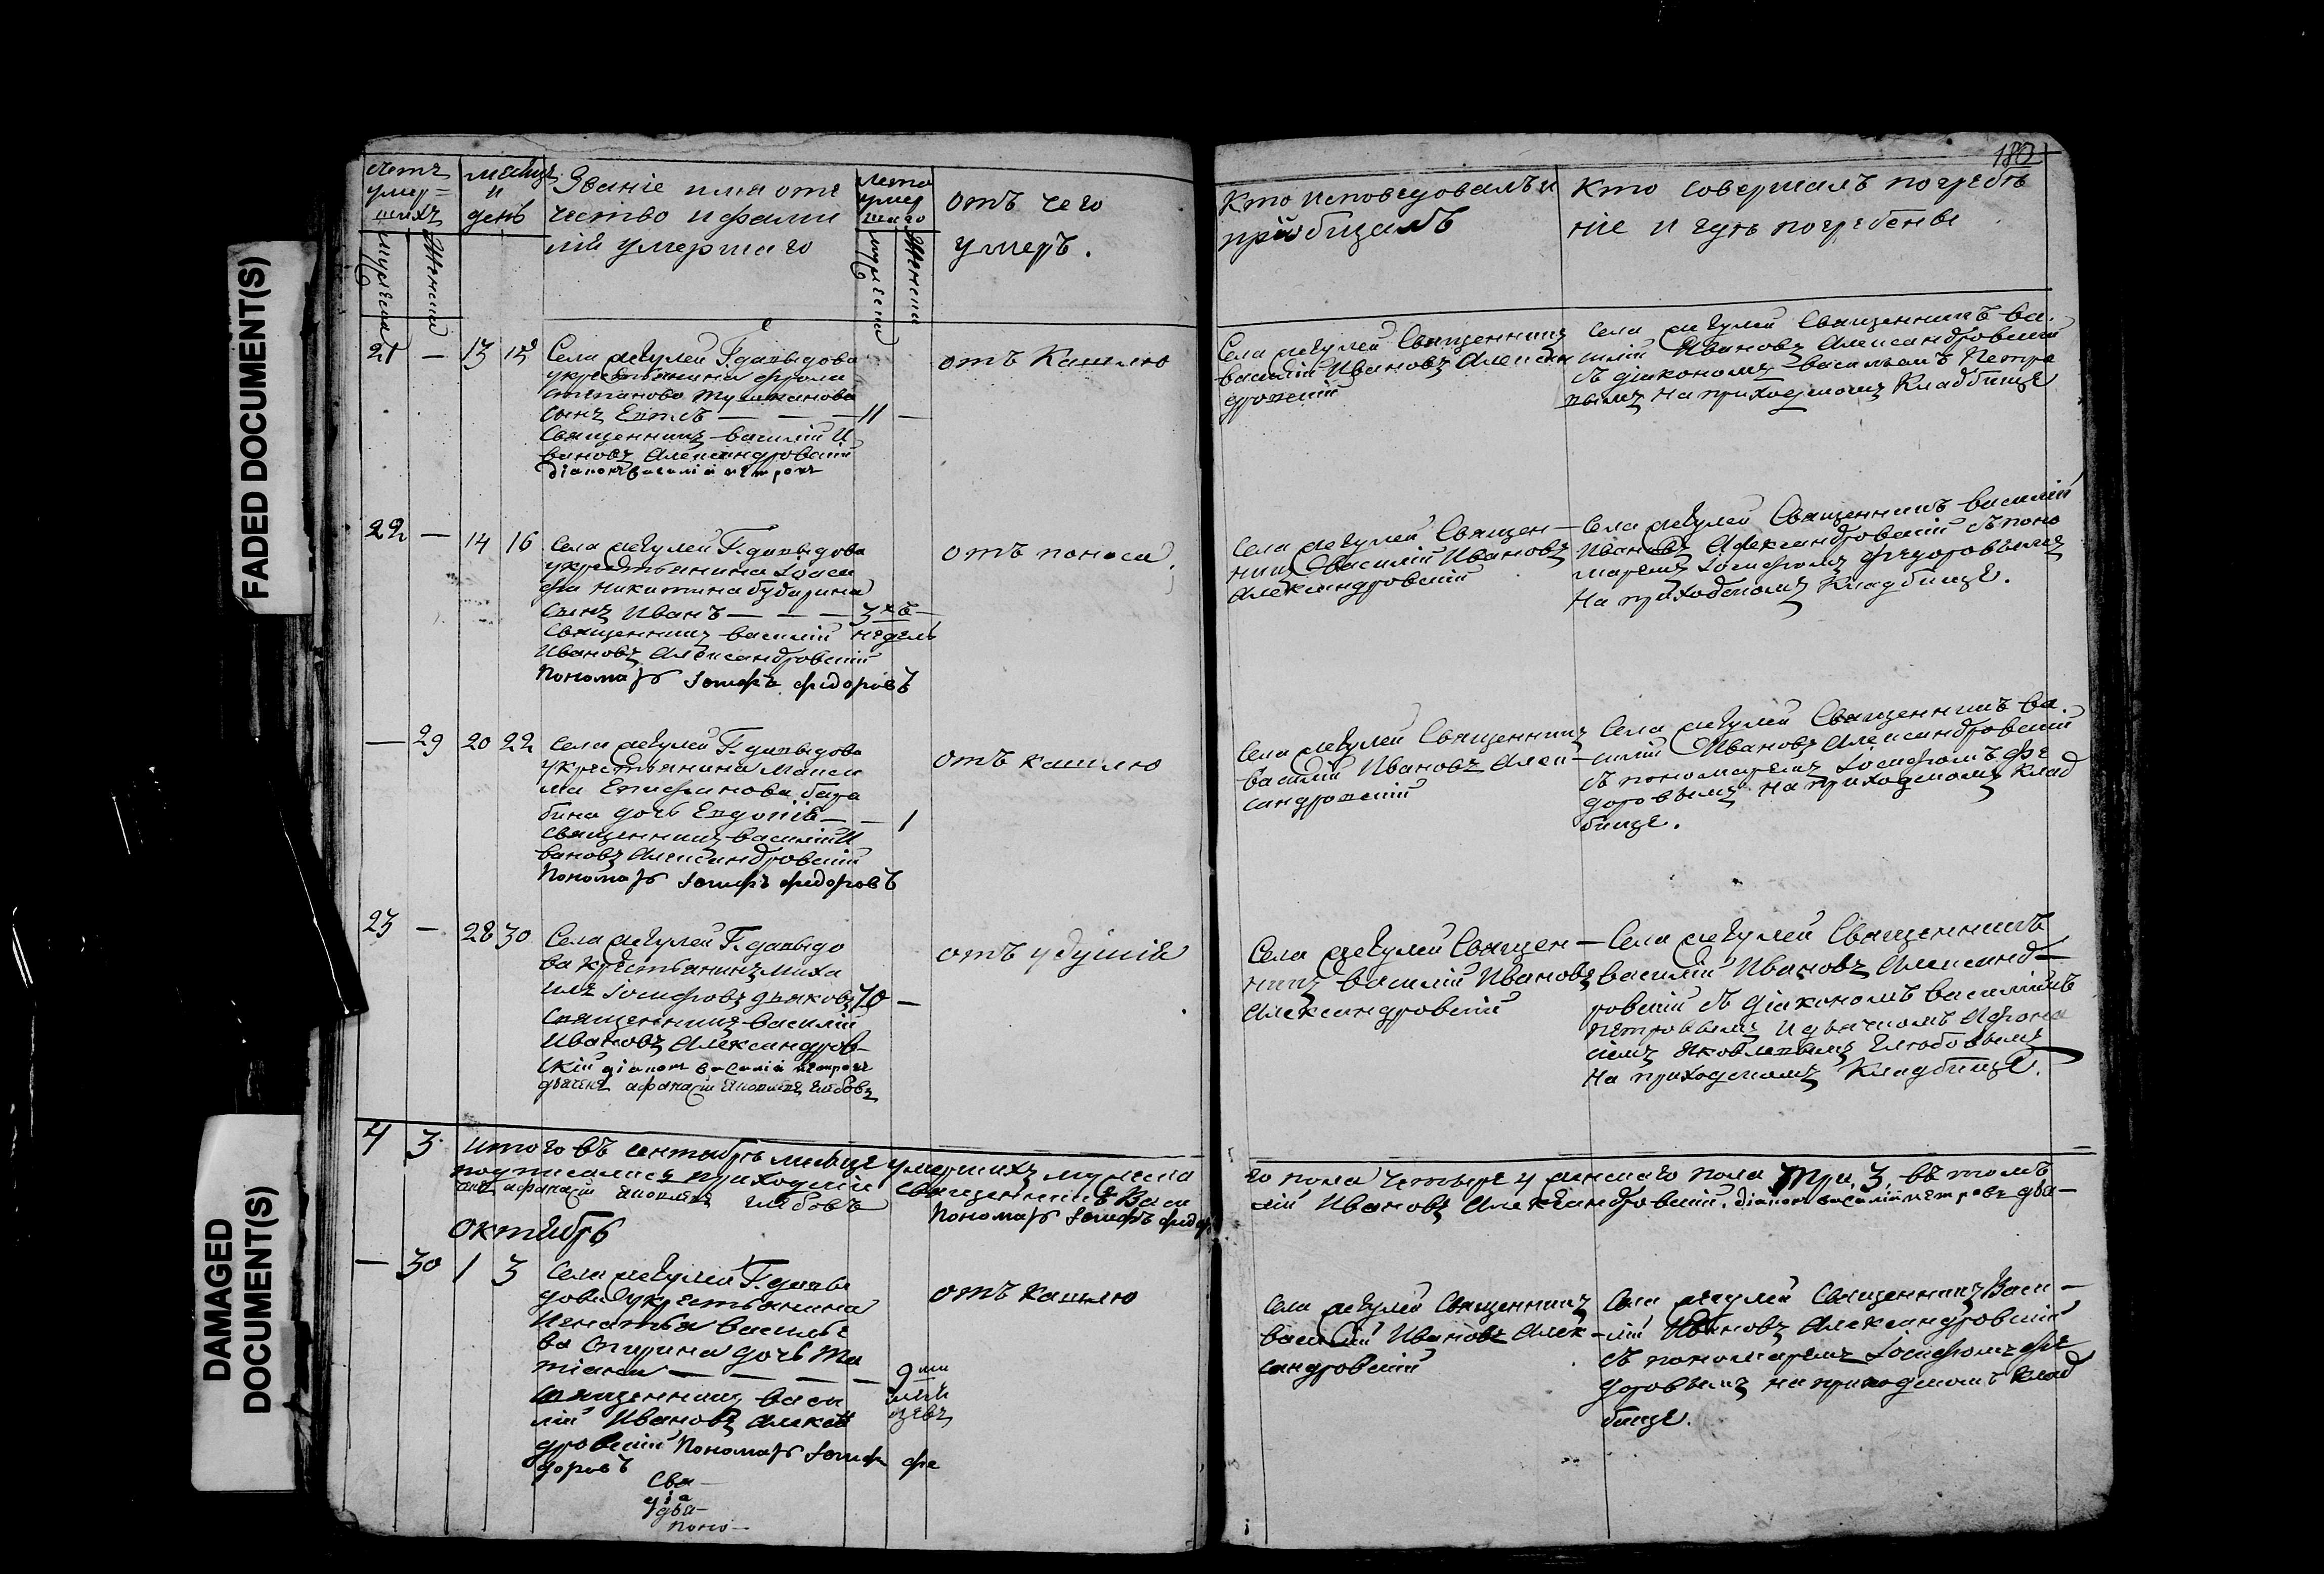 FADED DOCUMENT(S)
DAMAGED
DOCUMENT(S)
180
счетъ
умер=
шихъ
мужеска
женска
месяцъ
и
день
Званіе имя отѣ
чество и фами
лія умершаго
лета
умер
шаго
мужеска
женска
отъ чего
умеръ.
Кто исповедовалъ и
пріобщалъ
Кто совершалъ погребѣ
ніе и гдѣ погребены
21 — 13 15
Села Г. давыдова
у крестьянина фрола
степанова
сынъ — — — 11 —
Священникъ василій И
вановъ Александровскій
діаконъ василій петровъ
отъ Кашлю
Села Священникъ
василій Ивановъ Алексан
дровскій
Села Священникъ ва-
силій Ивановъ Александровскій
съ діакономъ васильемъ Петро
вымъ на приходскомъ Кладбище
22 — 14 16
Села Г. давыдова
у крестьянина Іоси
фа никитина бударина
сынъ Иванъ — — — 3хъ —
Священникъ василій недель
Ивановъ Александровскій
Пономарь Іосифъ федоровъ
отъ поноса
Села Священ—
никъ Василій Ивановъ
Александровскій
Села Священникъ василій
Ивановъ Александровскій съ поно
маремъ Іосифомъ федоровымъ
на приходскомъ Кладбище.
— 29 20 22
Села Г. давыдова
у крестьянина Макси
ма бара
бина дочь Евдокія — — 1
священникъ василій И
вановъ Александровскій
Пономарь Іосифъ федоровъ
отъ кашлю
Села Священникъ
василій Ивановъ Алек-
сандровскій
Села Священникъ ва-
силій Ивановъ Александровскій
съ пономаремъ Іосифомъ фе
доровымъ на приходскомъ Клад
бище.
23 — 28 30
Села Г. давыдо
ва крестьянинъ миха
илъ Іосифовъ дьяковъ 70 —
Священникъ василій
Ивановъ Александров-
скій діаконъ василій петровъ
дьячекъ афанасій яковлевъ глебовъ
отъ удушія
Села Священ—
никъ василій Ивановъ
Александровскій
Села Священникъ
василій Ивановъ Александ—
ровскій съ діакономъ василіемъ
петровымъ и дьячкомъ Афона
сіемъ Яковлевымъ Глебовымъ
на приходскомъ Кладбище.
4 3 итого въ сентябрѣ месяце умершихъ мужеска
го пола четыре 4 женскаго пола три, 3, въ томъ
подписался приходскій священникъ Васи
лій Ивановъ Александровскій. діаконъ василій петровъ дья—
чекъ афанасій яковлевъ глебовъ Пономарь Іосифъ федор
октябрь
— 30 1 3
Села Г. давы
дова у крестьянина
Игнатья василье
ва Спирина дочь Та
тіана — — — — 9ти
священникъ васи меся
лій Ивановъ Алексан цевъ
дровскій Пономарь Іосифъ фе
доровъ
отъ кашлю
Села Священникъ
василій Ивановъ Алек-
сандровскій
Села Священникъ Васи—
лій Ивановъ Александровскій
съ пономаремъ Іосифомъ фе
доровымъ на приходскомъ Клад
бище.
Свя—
діа
дья—
поно—